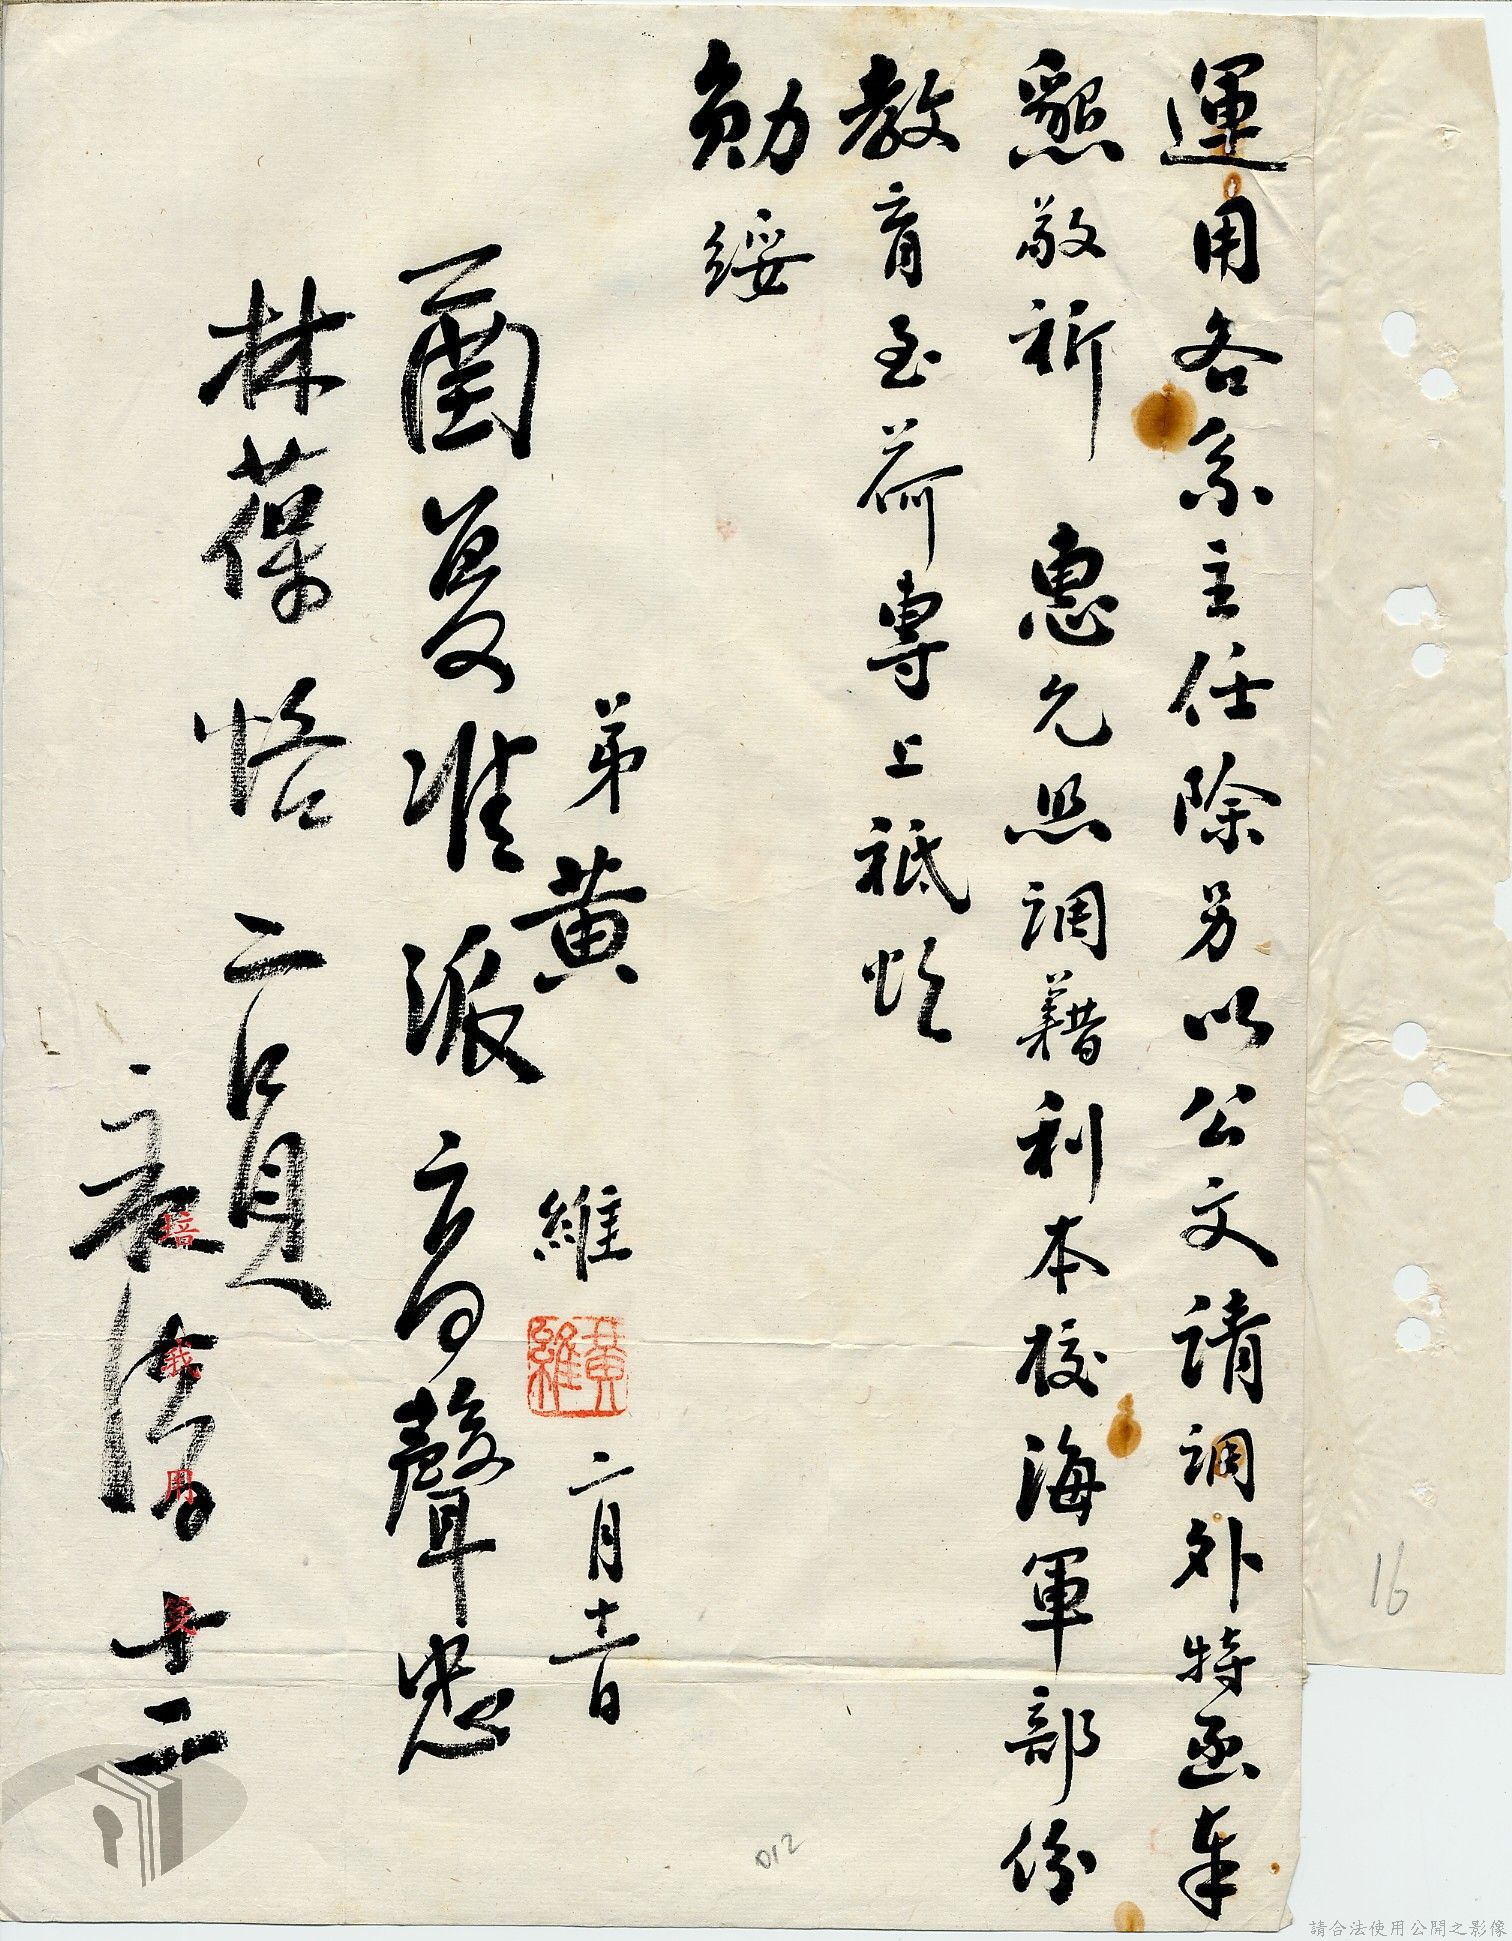 運用各系主任除另以公文請調外特函奉
懇敬祈 惠允照調藉利本校海軍部份
教育至荷專上祗頌
勛綏
弟黃 維
黃維
二月十二日
函复准派高聲忠
林葆恪二員
十二
16
012
請合法使用公開之影像